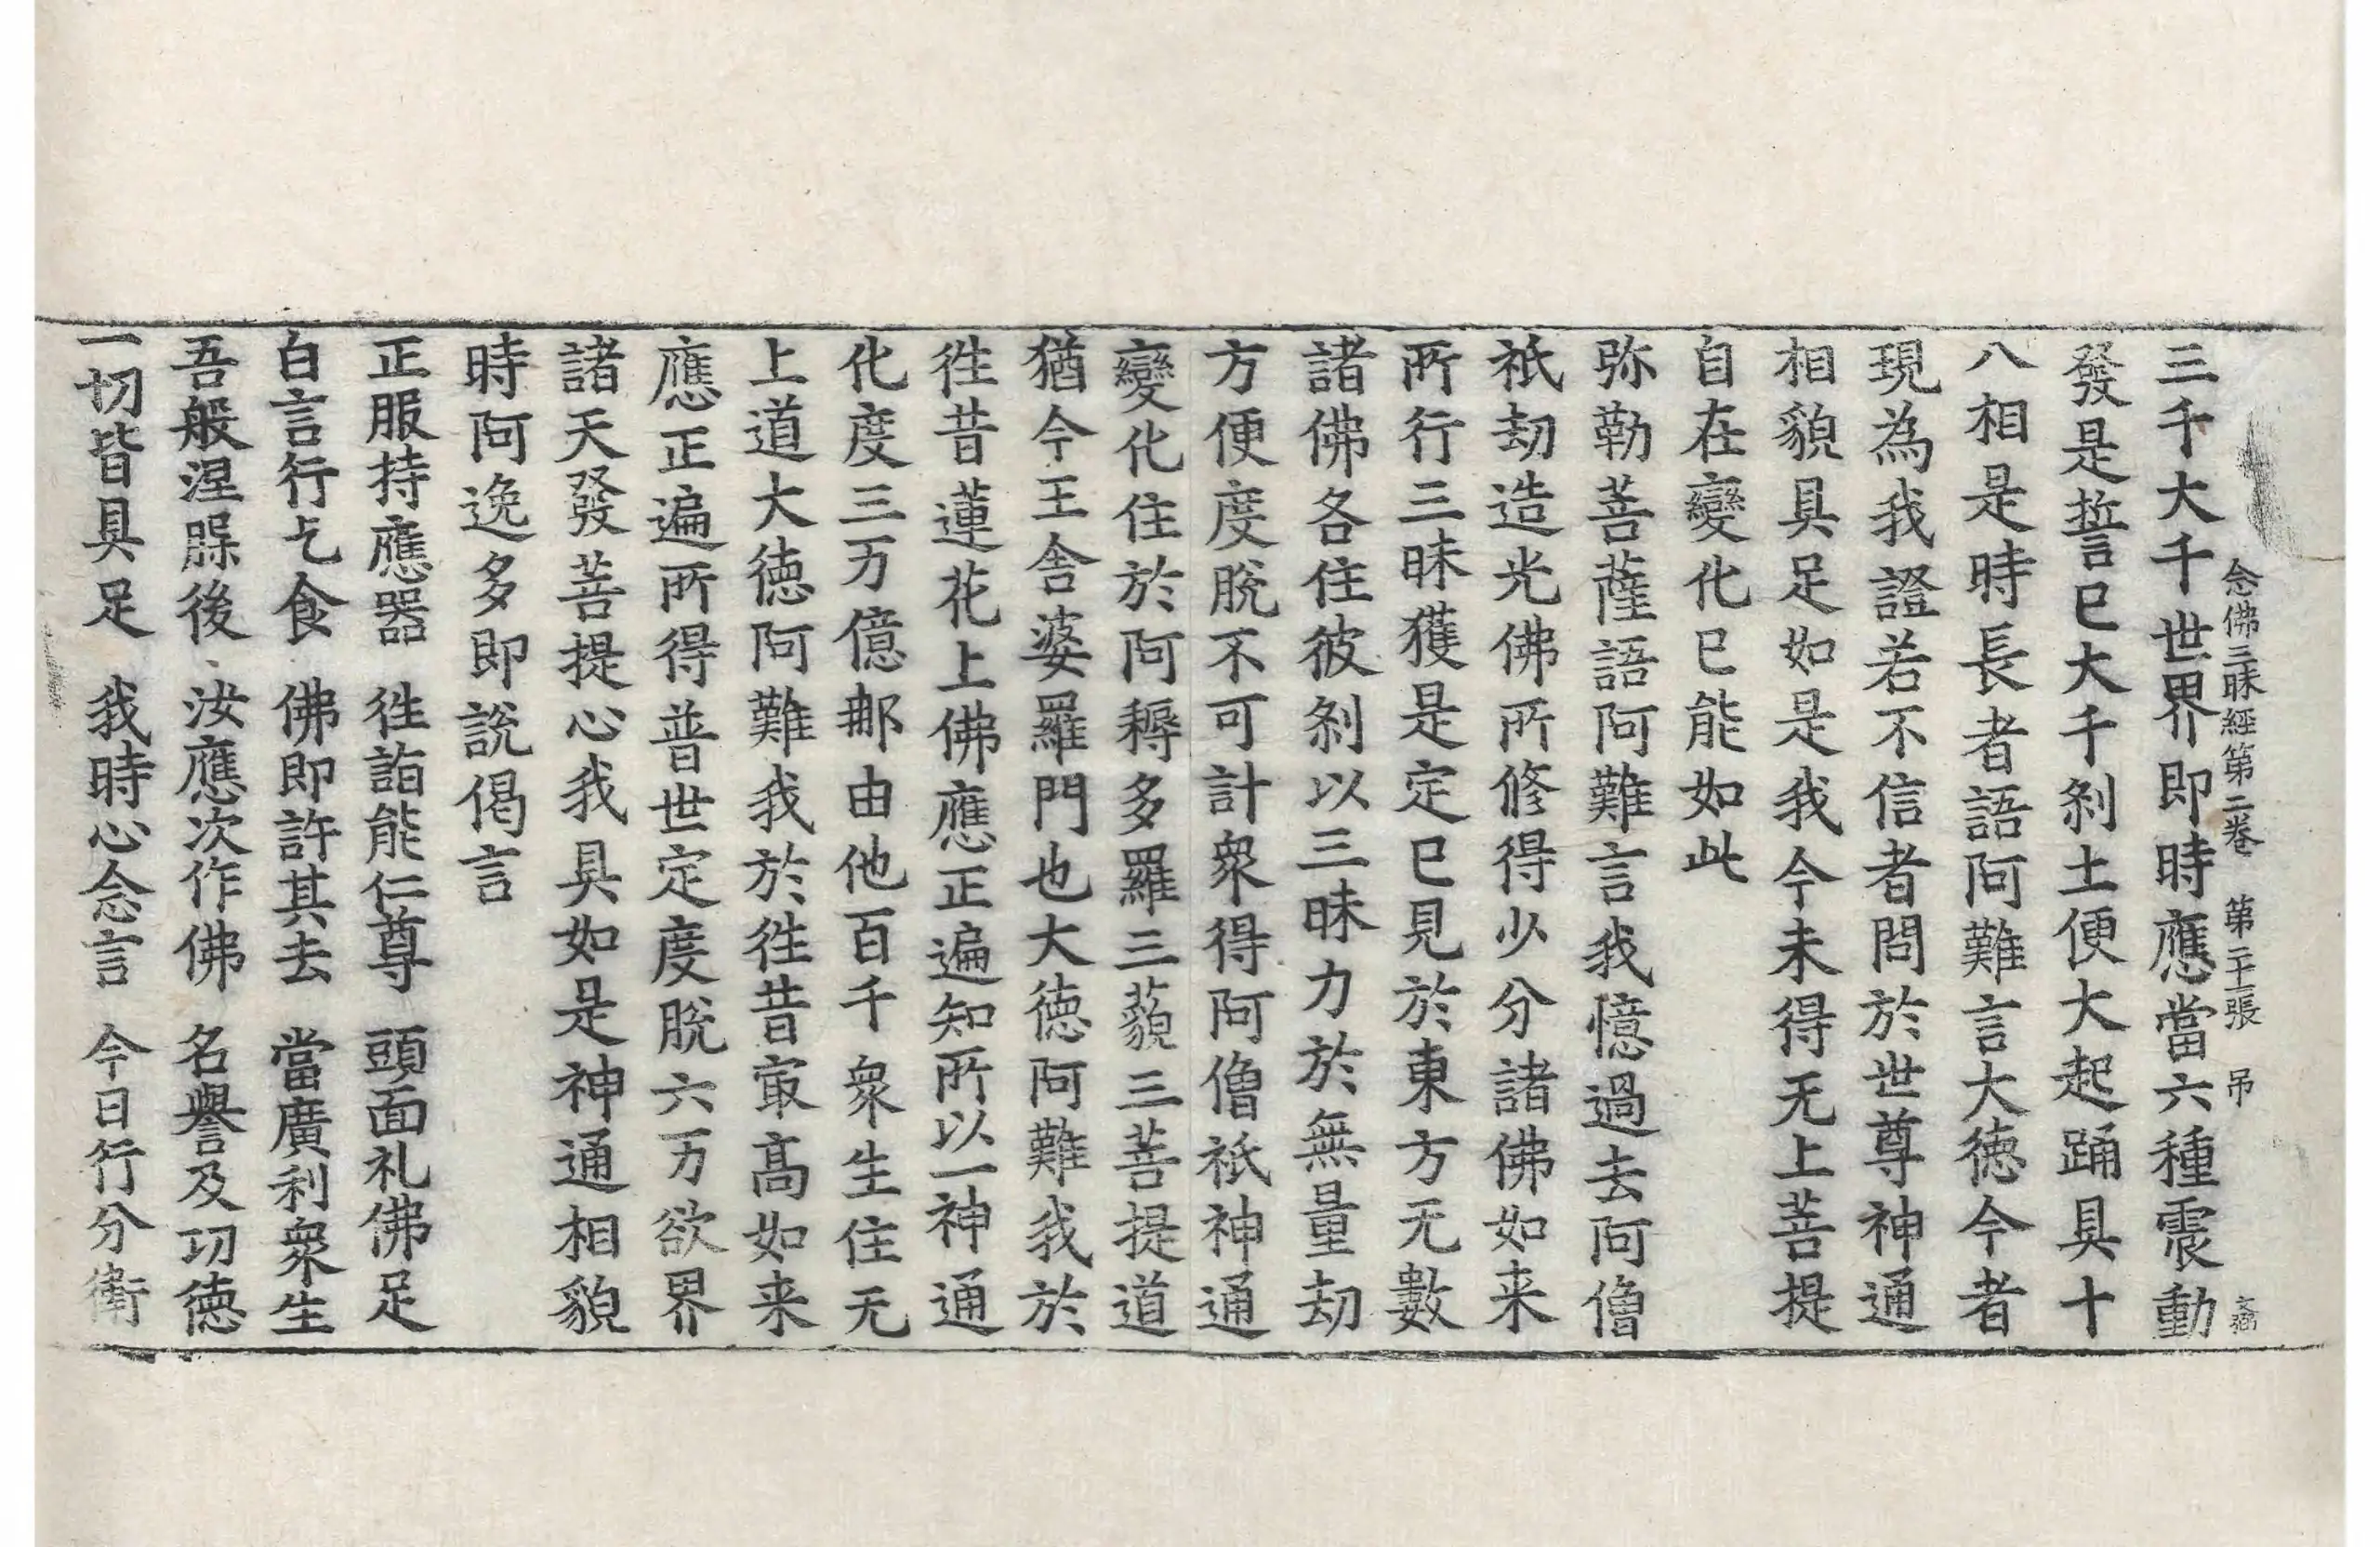 念佛三昧經第二卷　第二十二張　吊
三千大千世界即時應當六種震動
發是誓已大千刹土便大起踊具十
八相是時長者語阿難言大徳今者
現為我證若不信者問於世尊神通
相貌具足如是我今未得无上菩提
自在變化已能如此
弥勒菩薩語阿難言我憶過去阿僧
祇劫造光佛所修得少分諸佛如来
所行三昧獲是定已見於東方无數
諸佛各住彼刹以三昧力於無量劫
方便度脫不可計衆得阿僧祇神通
變化住於阿耨多羅三藐三菩提道
猶今王舍婆羅門也大徳阿難我於
徃昔蓮花上佛應正遍知所以一神通
化度三万億那由他百千衆生住无
上道大徳阿難我於徃昔㝡髙如来
應正遍所得普世定度脫六万欲界
諸天發菩提心我具如是神通相貌
時阿逸多即說偈言
正服持應器　徃詣能仁尊　頭面礼佛足
白言行乞食　佛即許其去　當廣利衆生
吾般涅槃後　汝應次作佛　名譽及功徳
一切皆具足　我時心念言　今日行分衛